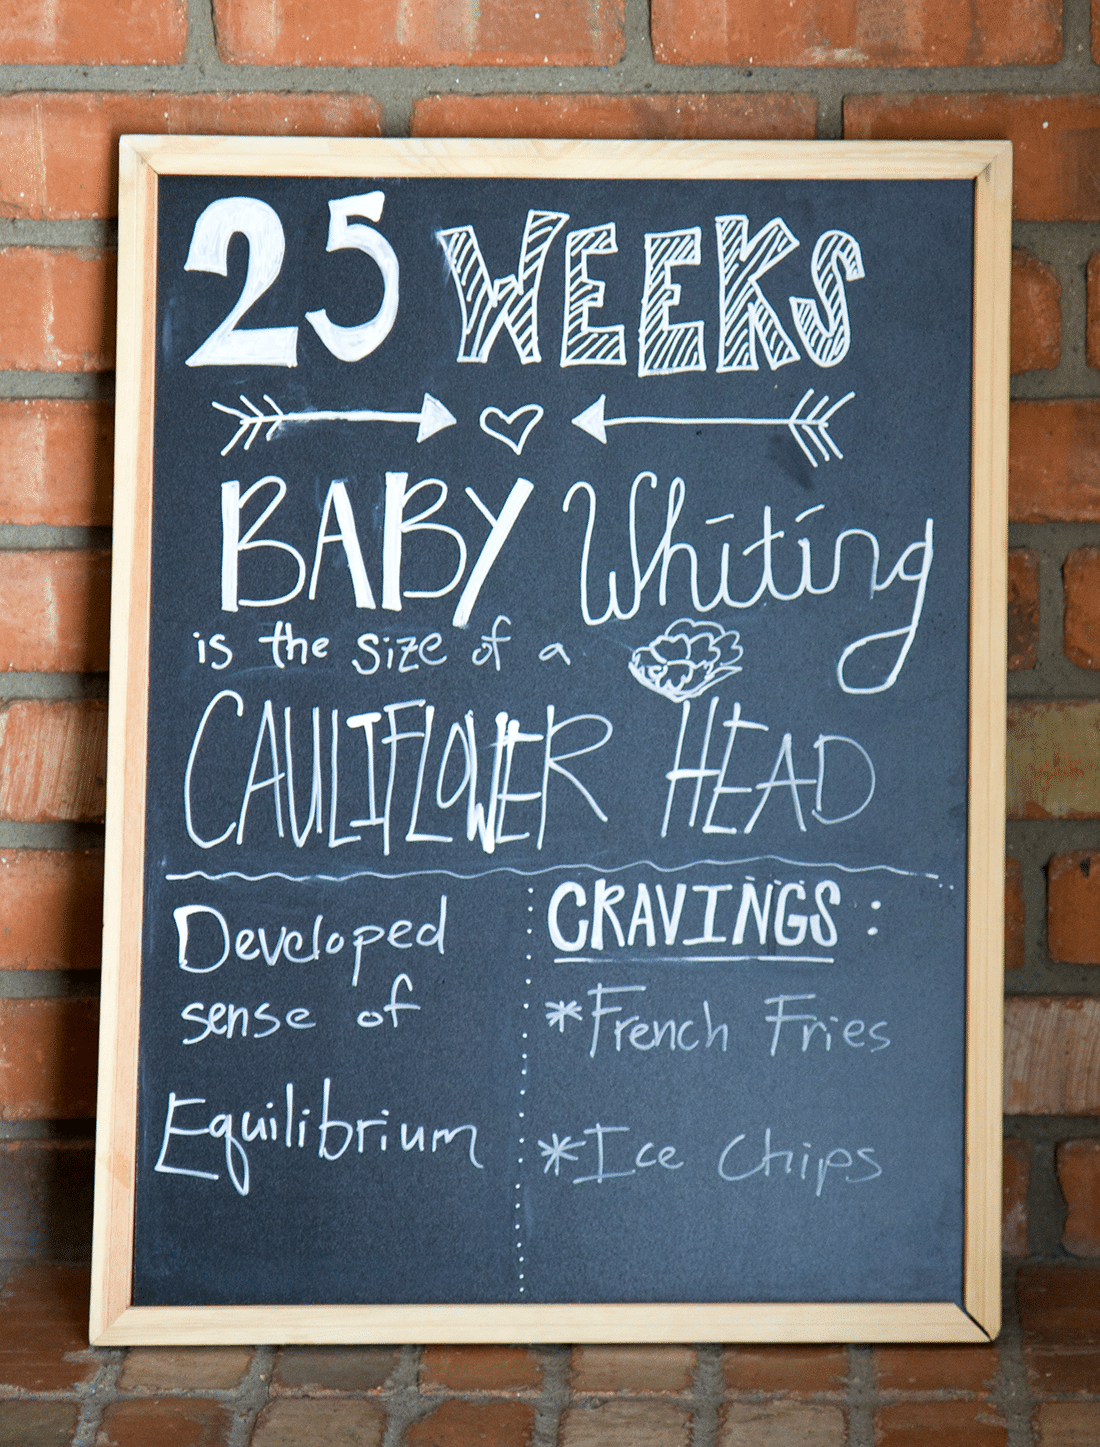 25 WEEKS
BABY Whiting
is the size of a
CAULIFLOWER HEAD
Developed
sense of
Equilibrium
CRAVINGS:
*French Fries
*Ice Chips